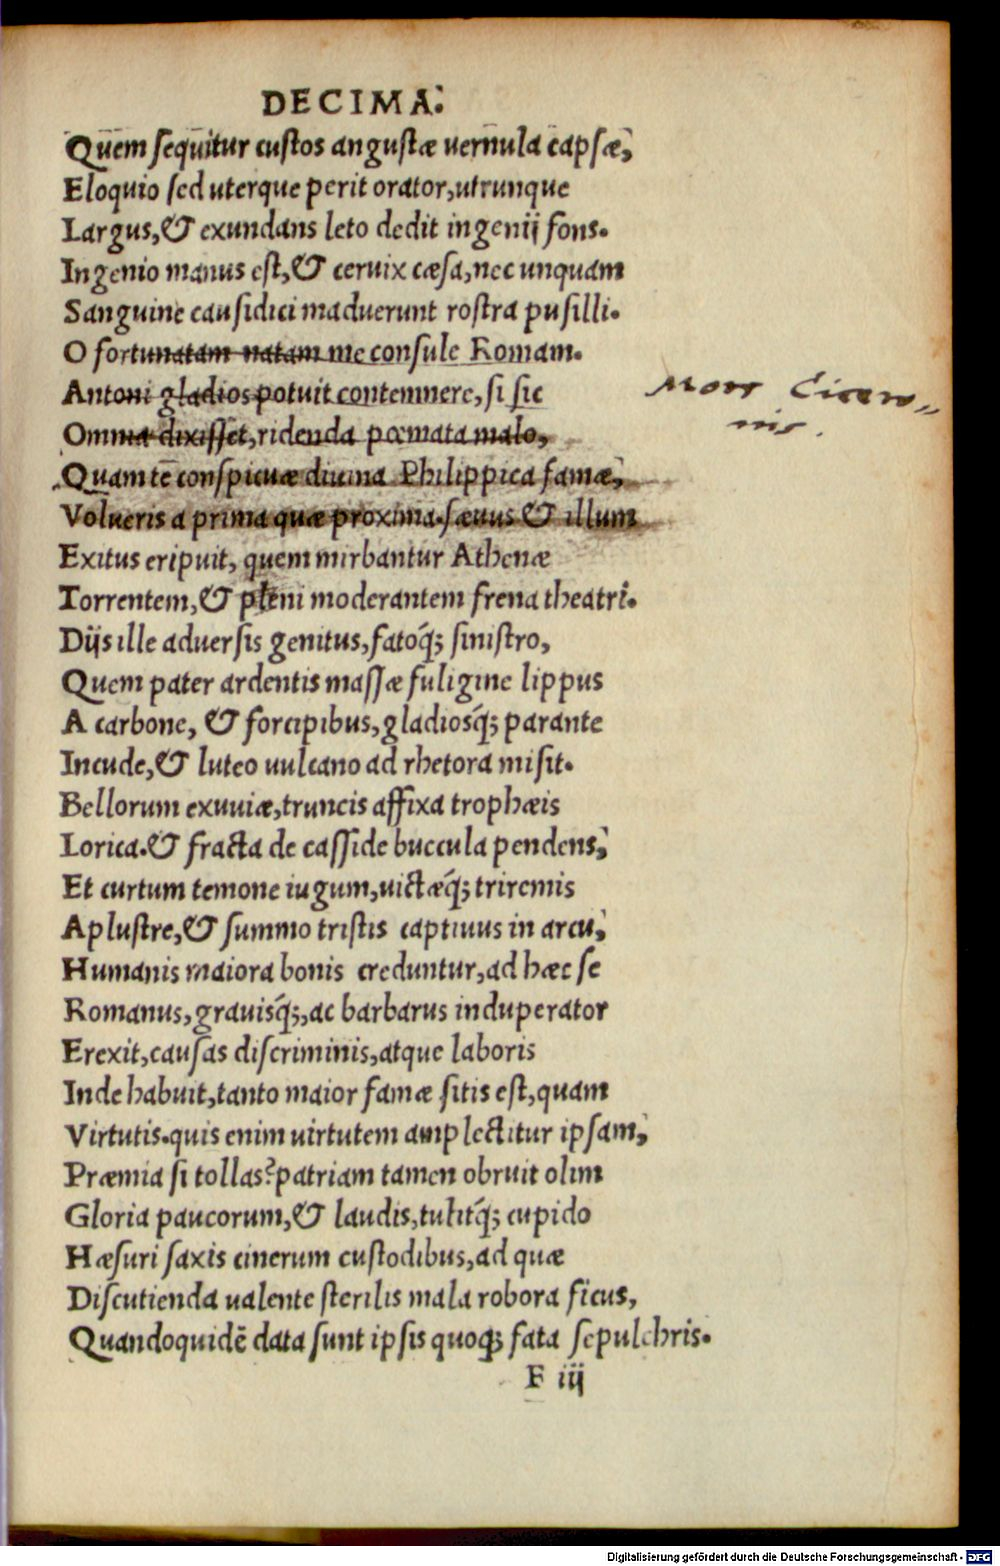 DECIMA.
Quem sequitur custos angustæ vernula capsæ,
Eloquio sed uterque perit orator, utrunque
Largus, & exundans leto dedit ingenij fons.
Ingenio manus est, & ceruix cæsa, nec unquam
Sanguine causidici maduerunt rostra pusilli.
O fortunatam natam me consule Romam.
Antoni gladios potuit contemnere, si sic
Omnia dixisset, ridenda pœmata malo,
Quam tē conspicuæ diuina Philippica famæ,
Volueris a prima quæ proxima. sæuus & illum
Exitus eripuit, quem mirbantur Athenæ
Torrentem, & pleni moderantem frena theatri.
Dijs ille aduersis genitus, fatoq́; sinistro,
Quem pater ardentis massæ fuligine lippus
A carbone, & forcipibus, gladiosq́; parante
Incude, & luteo uulcano ad rhetora misit.
Bellorum exuuiæ, truncis affixa trophæis
Lorica. & fracta de casside buccula pendens,
Et curtum temone iugum, uictæq́; triremis
Aplustre, & summo tristis captiuus in arcu,
Humanis maiora bonis creduntur, ad hæc se
Romanus, grauisq́;, ac barbarus induperator
Erexit, causas discriminis, atque laboris
Inde habuit, tanto maior famæ sitis est, quam
Virtutis. quis enim uirtutem amplectitur ipsam,
Præmia si tollas? patriam tamen obruit olim
Gloria paucorum, & laudis, tulitq́; cupido
Hæsuri saxis cinerum custodibus, ad quæ
Discutienda ualente sterilis mala robora ficus,
Quandoquidē data sunt ipsis quoq; fata sepulchris.
F iij
Mors Cicero-
nis.
Digitalisierung gefördert durch die Deutsche Forschungsgemeinschaft - DFG